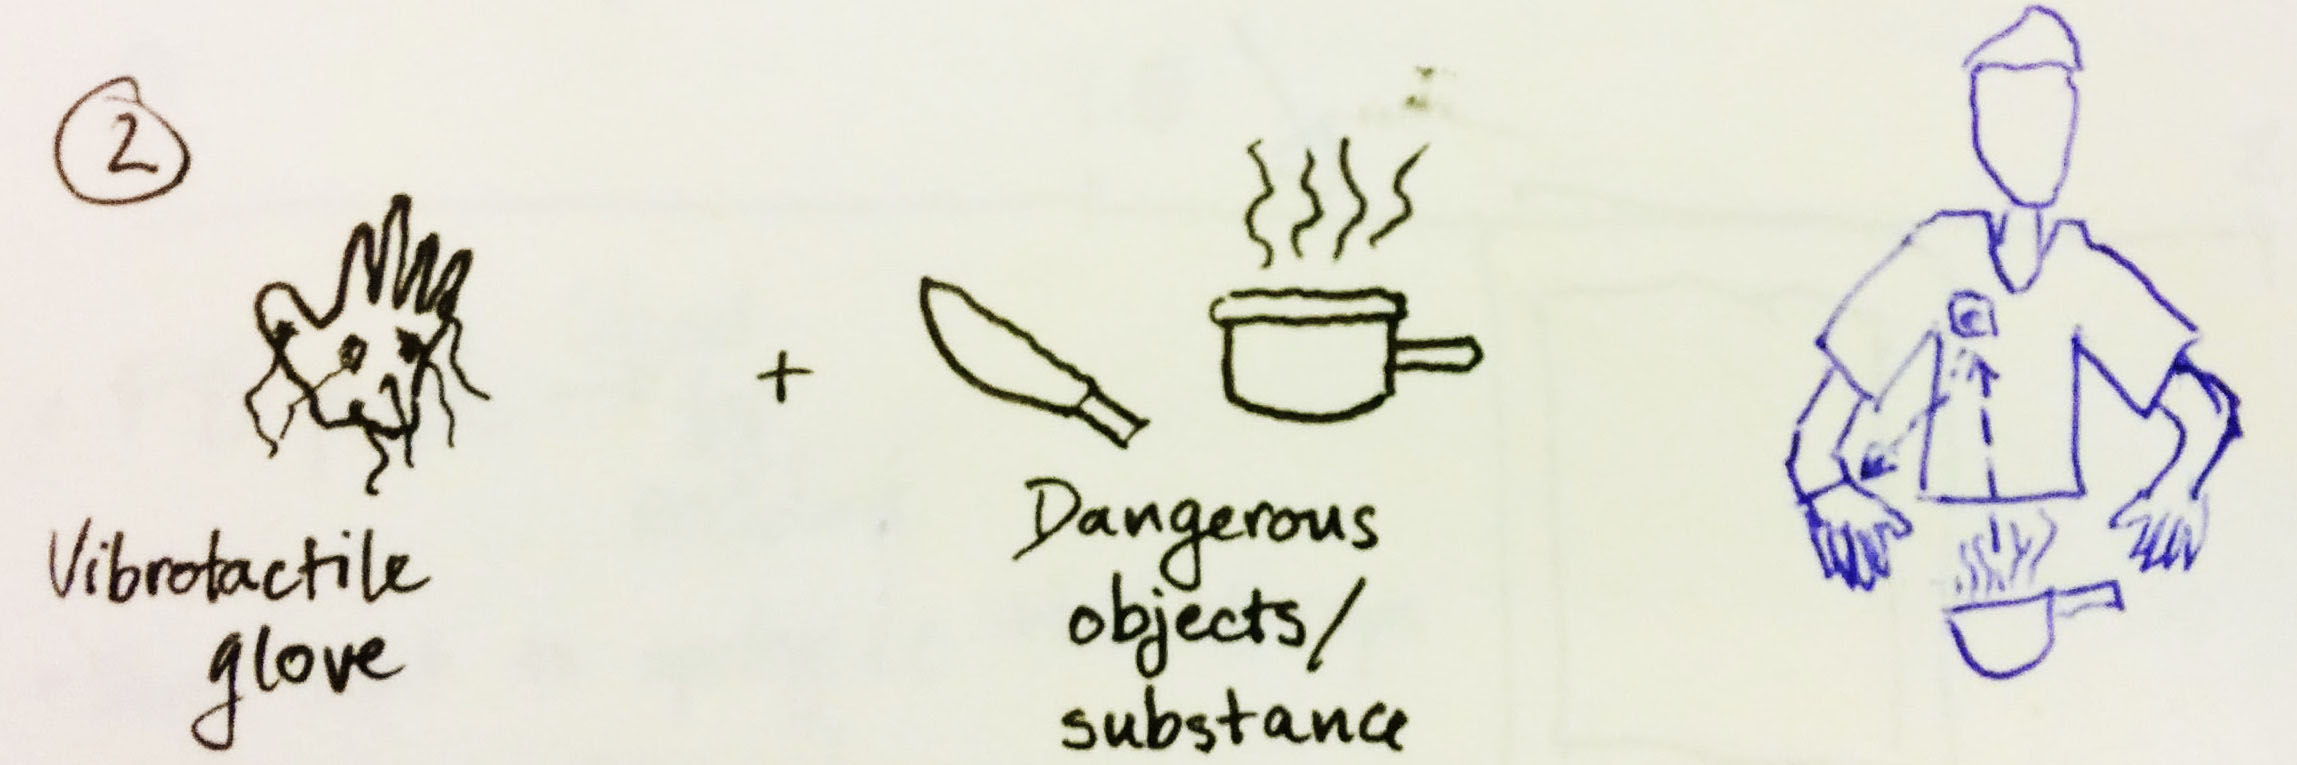 2
Vibrotactile
glove
+
Dangerous
objects/
substance